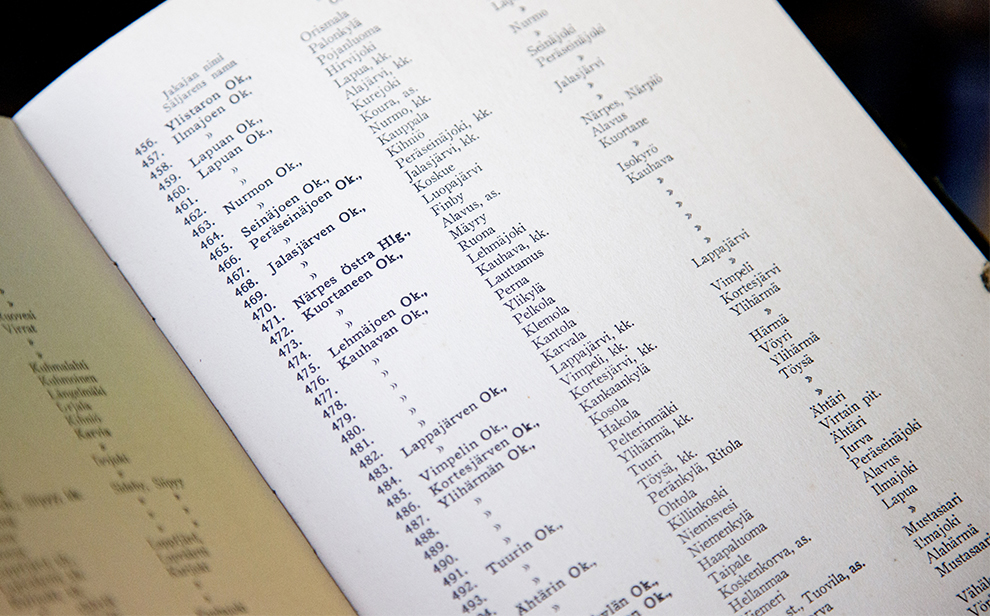 Ruovesi
Virrat
»
»
Kuhmalahti
Kuhmoinen
Längelmäki
Urjala
Kihniö
Karvia
»
Jakajan nimi
Säljarens nama
456. Ylistaron Ok.,
457. Ilmajoen Ok.,
458. »
459. Lapuan Ok.,
460. Lapuan Ok.,
461. »
462. »
463. Nurmon Ok.,
464. »
465. Seinäjoen Ok.,
466. Peräseinäjoen Ok.,
467. »
468. Jalasjärven Ok.,
469. »
470. »
471. Närpes Östra Hlg.,
472. Kuortaneen Ok.,
473. »
474. »
475. Lehmäjoen Ok.,
476. Kauhavan Ok.,
477. »
478. »
479. »
480. »
481. »
482. Lappajärven Ok.,
483. »
484. Vimpelin Ok.,
485. Kortesjärven Ok.,
486. Ylihärmän Ok.,
487. »
488. »
489. »
490. Tuurin Ok.,
491. »
492. Ähtärin Ok.,
493. »
Orismala
Palonkylä
Pojanluoma
Hirvijoki
Lapua, kk.
Alajärvi, kk.
Kurejoki
Koura, as.
Nurmo, kk.
Kauppala
Kihniö
Peräseinäjoki, kk.
Jalasjärvi, kk.
Koskue
Luopajärvi
Finby
Alavus, as.
Mäyry
Ruona
Lehmäjoki
Kauhava, kk.
Lauttamus
Perna
Ylikylä
Pelkola
Klemola
Kantola
Karvala
Lappajärvi, kk.
Vimpeli, kk.
Kortesjärvi, kk.
Kankaankylä
Kosola
Hakola
Pelterinmäki
Ylihärmä, kk.
Tuuri
Töysä, kk.
Peränkylä, Ritola
Ohtola
Killinkoski
Niemisvesi
Niemenkylä
Haapaluoma
Taipale
Koskenkorva, as.
Hellanmaa
Tuovila, as.
»
Nurmo
»
Seinäjoki
Peräseinäjoki
»
Jalasjärvi
»
»
Närpes, Närpiö
Alavus
Kuortane
»
Isokyrö
Kauhava
»
»
»
»
»
Lappajärvi
»
Vimpeli
Kortesjärvi
Ylihärmä
»
Härmä
Vöyri
Ylihärmä
Töysä
»
»
Ähtäri
Virtain pit.
Ähtäri
Jurva
Peräseinäjoki
Alavus
Ilmajoki
Lapua
»
Mustasaari
Ilmajoki
Alahärmä
Mustasaari